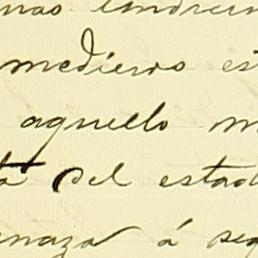 medieros es
aquello m
ta del estad
enaza á seg